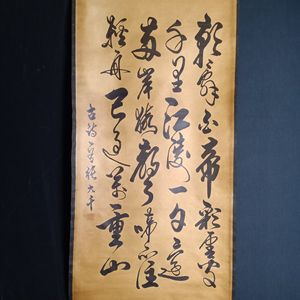 朝辭白帝彩雲間
千里江陵一日還
兩岸猿聲啼不住
輕舟已過萬重山
古詩一首張大千